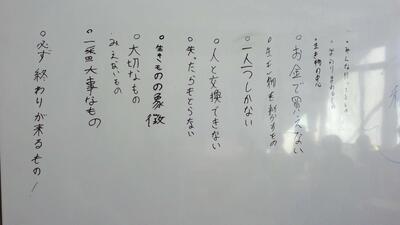 ・みんなが持っているもの
・生き物の心
・お金で買えない
・生き物を動かすもの
・一人一つしかない
・人と交換できない
・失ったらもどらない
・生きものの象徴
・大切なもの
・みえないもの
・一番大事なもの
・必ず終わりが来るもの!